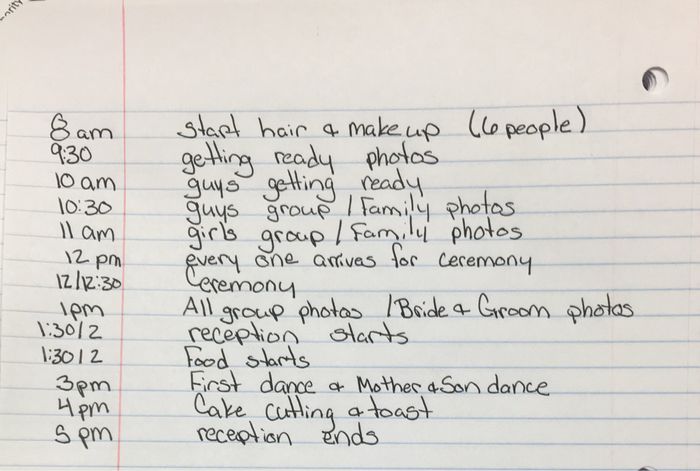 8 am start hair & make up (6 people)
9:30 getting ready photos
10 am guys getting ready
10:30 guys group / Family photos
11 am girls group / Family photos
12 pm every one arrives for ceremony
12/12:30 Ceremony
1pm All group photos / Bride & Groom photos
1:30/2 reception starts
1:30/2 Food starts
3pm First dance & Mother & Son dance
4pm Cake cutting & toast
5 pm reception ends